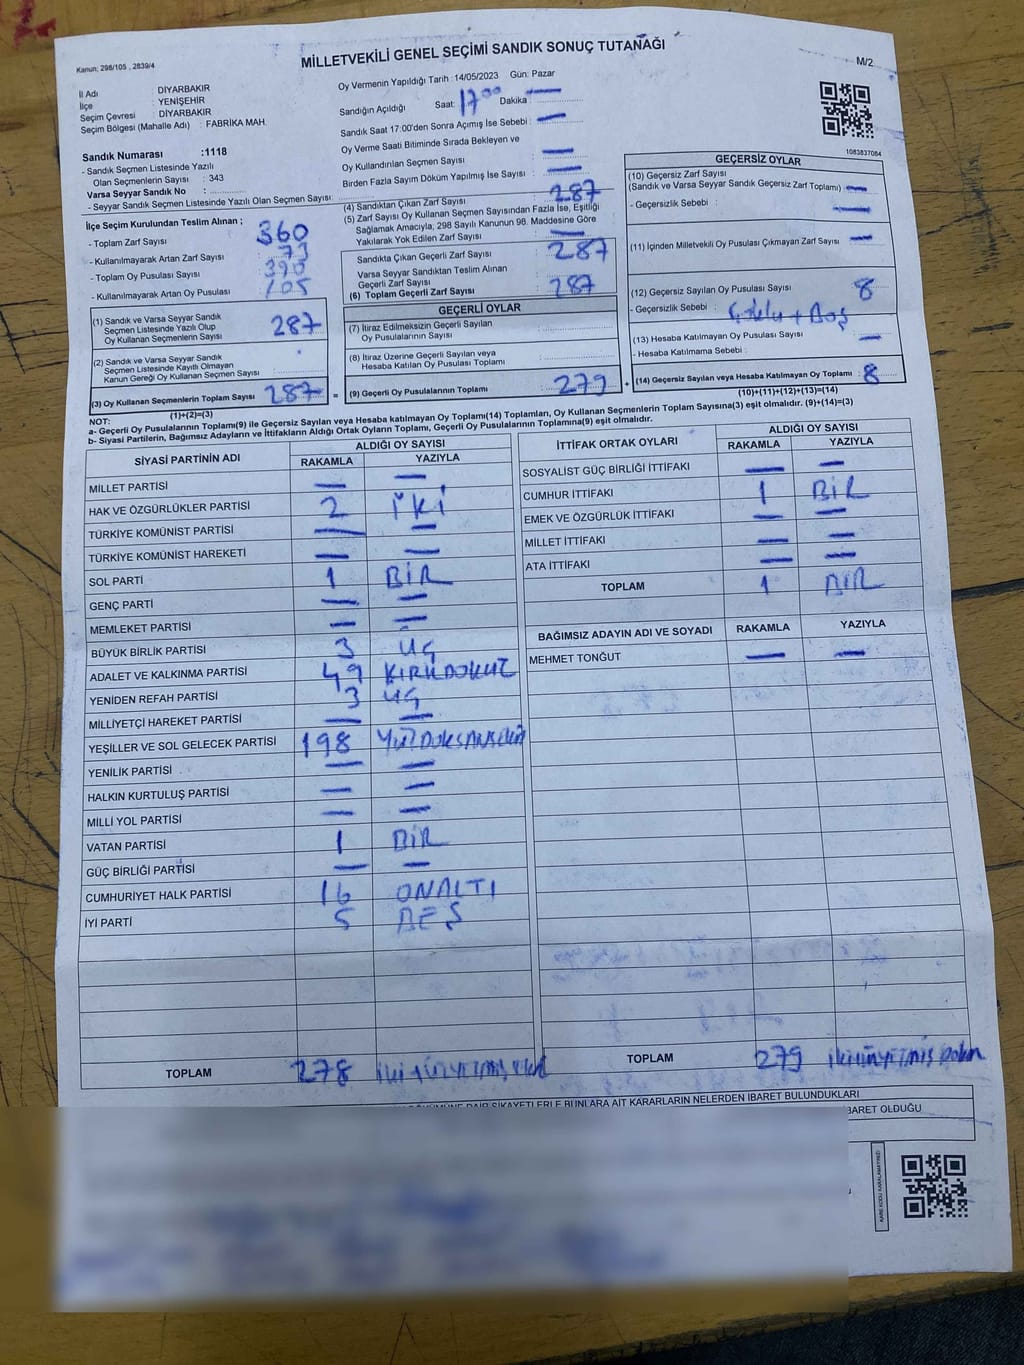 Kanun: 298/105 , 2839/4
MİLLETVEKİLİ GENEL SEÇİMİ SANDIK SONUÇ TUTANAĞI
M/2
İl Adı : DİYARBAKIR
İlçe : YENİŞEHİR
Seçim Çevresi : DİYARBAKIR
Seçim Bölgesi (Mahalle Adı) : FABRİKA MAH.
Oy Vermenin Yapıldığı Tarih : 14/05/2023 Gün: Pazar
Sandığın Açıldığı Saat: 17⁰⁰ Dakika : —
Sandık Saat 17:00'den Sonra Açımış İse Sebebi : —
Oy Verme Saati Bitiminde Sırada Bekleyen ve
Oy Kullandırılan Seçmen Sayısı : —
Birden Fazla Sayım Döküm Yapılmış İse Sayısı : —
1083837084
Sandık Numarası :1118
- Sandık Seçmen Listesinde Yazılı
Olan Seçmenlerin Sayısı : 343
Varsa Seyyar Sandık No :
- Seyyar Sandık Seçmen Listesinde Yazılı Olan Seçmen Sayısı:
İlçe Seçim Kurulundan Teslim Alınan ;
- Toplam Zarf Sayısı : 360
- Kullanılmayarak Artan Zarf Sayısı : 73
- Toplam Oy Pusulası Sayısı : 390
- Kullanılmayarak Artan Oy Pusulası : 105
(1) Sandık ve Varsa Seyyar Sandık
Seçmen Listesinde Yazılı Olup
Oy Kullanan Seçmenlerin Sayısı : 287
(2) Sandık ve Varsa Seyyar Sandık
Seçmen Listesinde Kayıtlı Olmayan
Kanun Gereği Oy Kullanan Seçmen Sayısı :
(3) Oy Kullanan Seçmenlerin Toplam Sayısı : 287
(1)+(2)=(3)
(4) Sandıktan Çıkan Zarf Sayısı : 287
(5) Zarf Sayısı Oy Kullanan Seçmen Sayısından Fazla İse, Eşitliği
Sağlamak Amacıyla, 298 Sayılı Kanunun 98. Maddesine Göre
Yakılarak Yok Edilen Zarf Sayısı : —
Sandıkta Çıkan Geçerli Zarf Sayısı : 287
Varsa Seyyar Sandıktan Teslim Alınan
Geçerli Zarf Sayısı :
(6) Toplam Geçerli Zarf Sayısı : 287
GEÇERLİ OYLAR
(7) İtiraz Edilmeksizin Geçerli Sayılan
Oy Pusulalarının Sayısı :
(8) İtiraz Üzerine Geçerli Sayılan veya
Hesaba Katılan Oy Pusulası Toplamı :
= (9) Geçerli Oy Pusulalarının Toplamı : 279 +
GEÇERSİZ OYLAR
(10) Geçersiz Zarf Sayısı
(Sandık ve Varsa Seyyar Sandık Geçersiz Zarf Toplamı) : —
- Geçersizlik Sebebi : —
(11) İçinden Milletvekili Oy Pusulası Çıkmayan Zarf Sayısı : —
(12) Geçersiz Sayılan Oy Pusulası Sayısı : 8
- Geçersizlik Sebebi : + Boş
(13) Hesaba Katılmayan Oy Pusulası Sayısı : —
- Hesaba Katılmama Sebebi :
(14) Geçersiz Sayılan veya Hesaba Katılmayan Oy Toplamı : 8
(10)+(11)+(12)+(13)=(14)
NOT:
a- Geçerli Oy Pusulalarının Toplamı(9) ile Geçersiz Sayılan veya Hesaba katılmayan Oy Toplamı(14) Toplamları, Oy Kullanan Seçmenlerin Toplam Sayısına(3) eşit olmalıdır. (9)+(14)=(3)
b- Siyasi Partilerin, Bağımsız Adayların ve İttifakların Aldığı Ortak Oyların Toplamı, Geçerli Oy Pusulalarının Toplamına(9) eşit olmalıdır.
SİYASİ PARTİNİN ADI ALDIĞI OY SAYISI
RAKAMLA YAZIYLA
MİLLET PARTİSİ — —
HAK VE ÖZGÜRLÜKLER PARTİSİ 2 İKİ
TÜRKİYE KOMÜNİST PARTİSİ — —
TÜRKİYE KOMÜNİST HAREKETİ — —
SOL PARTİ 1 BİR
GENÇ PARTİ — —
MEMLEKET PARTİSİ — —
BÜYÜK BİRLİK PARTİSİ 3 ÜÇ
ADALET VE KALKINMA PARTİSİ 49 KIRKDOKUZ
YENİDEN REFAH PARTİSİ 3 ÜÇ
MİLLİYETÇİ HAREKET PARTİSİ — —
YEŞİLLER VE SOL GELECEK PARTİSİ 198 YÜZDOKSANSEKİZ
YENİLİK PARTİSİ — —
HALKIN KURTULUŞ PARTİSİ — —
MİLLİ YOL PARTİSİ — —
VATAN PARTİSİ 1 BİR
GÜÇ BİRLİĞİ PARTİSİ — —
CUMHURİYET HALK PARTİSİ 16 ONALTI
İYİ PARTİ 5 BEŞ
TOPLAM 278
İTTİFAK ORTAK OYLARI ALDIĞI OY SAYISI
RAKAMLA YAZIYLA
SOSYALİST GÜÇ BİRLİĞİ İTTİFAKI — —
CUMHUR İTTİFAKI 1 BİR
EMEK VE ÖZGÜRLÜK İTTİFAKI — —
MİLLET İTTİFAKI — —
ATA İTTİFAKI — —
TOPLAM 1 BİR
BAĞIMSIZ ADAYIN ADI VE SOYADI RAKAMLA YAZIYLA
MEHMET TONĞUT — —
TOPLAM 279
ŞİKAYETLERLE BUNLARA AİT KARARLARIN NELERDEN İBARET BULUNDUKLARI
İBARET OLDUĞU